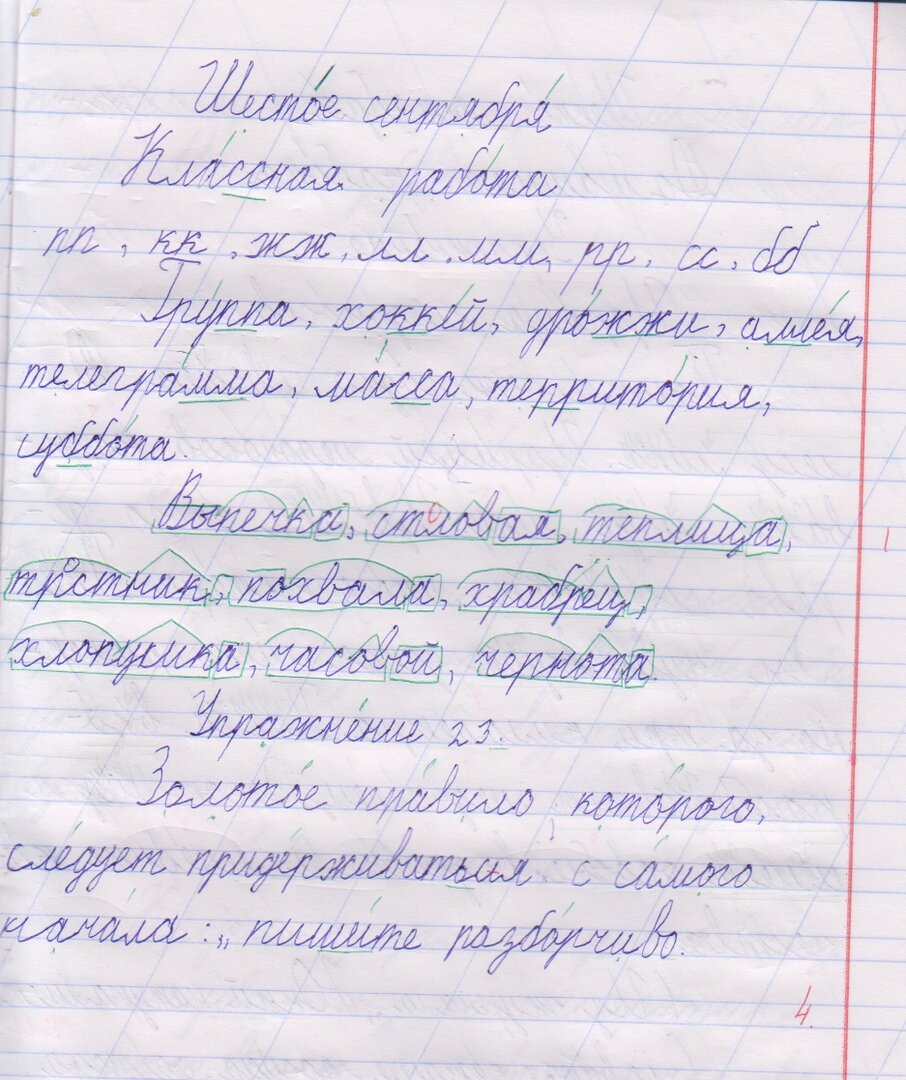 Шесто́е сентября́
Кла́ссная рабо́та
пп, кк, жж, лл, мм, рр, сс, бб
Гру́ппа, хокке́й, дро́жжи, алле́я,
телегра́мма, ма́сса, террито́рия,
суббо́та.
Выпечка, столовая, теплица,
тростник, похвала, храбрец,
хлопушка, часовой, чернота.
Упражне́ние 23.
Золото́е пра́вило кото́рого,
сле́дует приде́рживаться с са́мого
нача́ла: „пиши́те разбо́рчиво.
4.